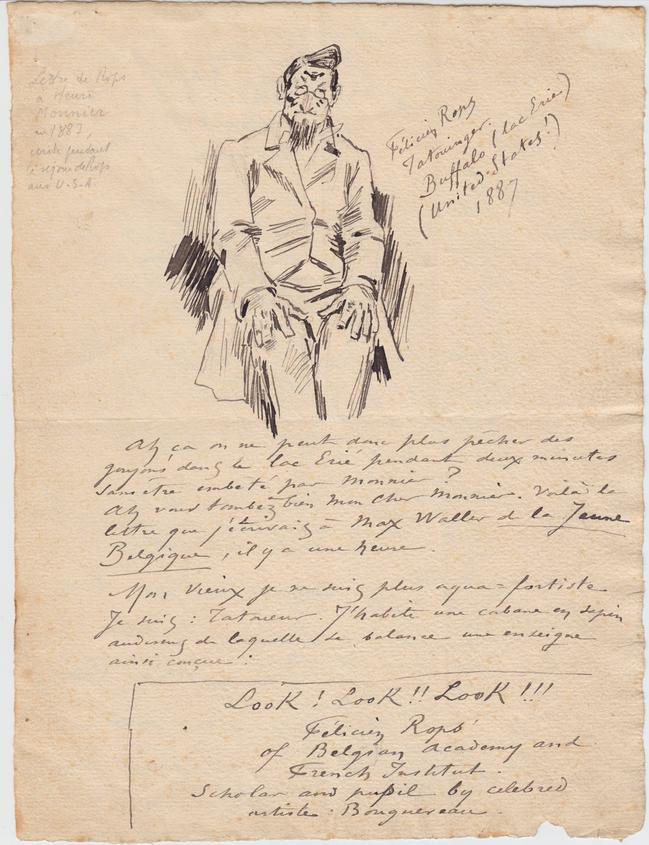 Lettre de Rops
à Henri
Monnier
en 1887,
écrite pendant
le séjour de Rops
aux U-S-A
Félicien Rops
Tatouinger.
Buffalo (lac Erié)
(United States!)
1887
Ah ça on ne peut donc plus pêcher des
goujons dans le lac Erié pendant deux minutes
sans être embeté par Monnier ?
Ah vous tombez bien mon cher Monnier. Voilà la
lettre que j'écrivais à Max Waller de la Jeune
Belgique, il y a une heure.
Mon vieux je ne suis plus aqua=fortiste
Je suis : Tatoueur. J'habite une cabane en sapin
audessus de laquelle se balance une enseigne
ainsi conçue :
Look ! Look !! Look !!!
Félicien Rops
of Belgian Academy and
French Institut.
Scholar and pupil by celebred
artiste Bouguereau.